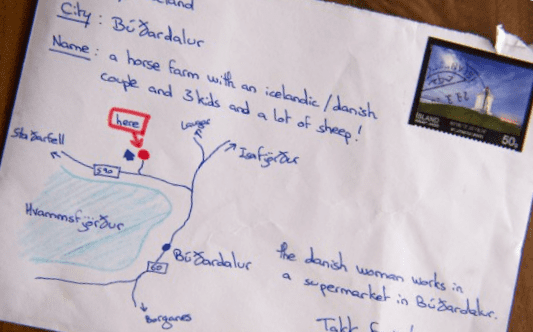 City : Búðardalur
Name : a horse farm with an icelandic/danish
couple and 3 kids and a lot of sheep!
here
Laugar
Staðarfell
Ísafjörður
590
Hvammsfjörður
Búðardalur
60
Borganes
the danish woman works in
a supermarket in Búðardalur.
Takk
ÍSLAND
50g